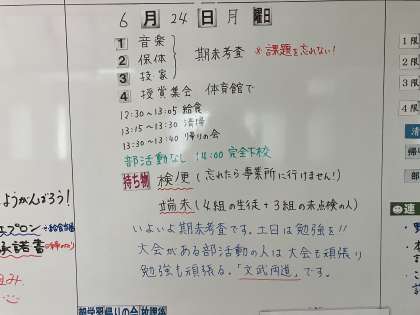 6 月 24 日 月 曜日
1 音楽
2 保体
3 技家
期末考査 ※課題を忘れない!
4 授賞集会 体育館で
12:30～13:05 給食
13:15～13:30 清掃
13:30～13:40 帰りの会
部活動なし 14:00 完全下校
持ち物 検便(忘れたら事業所に行けません!)
端末(4組の生徒+3組の未点検の人)
いよいよ期末考査です。土日は勉強を!!
大会がある部活動の人は大会も頑張り
勉強も頑張る。「文武両道」です。
ようがんばろう!
エプロン
承諾書
1限
2限
3限
4限
清
帰り
部
連